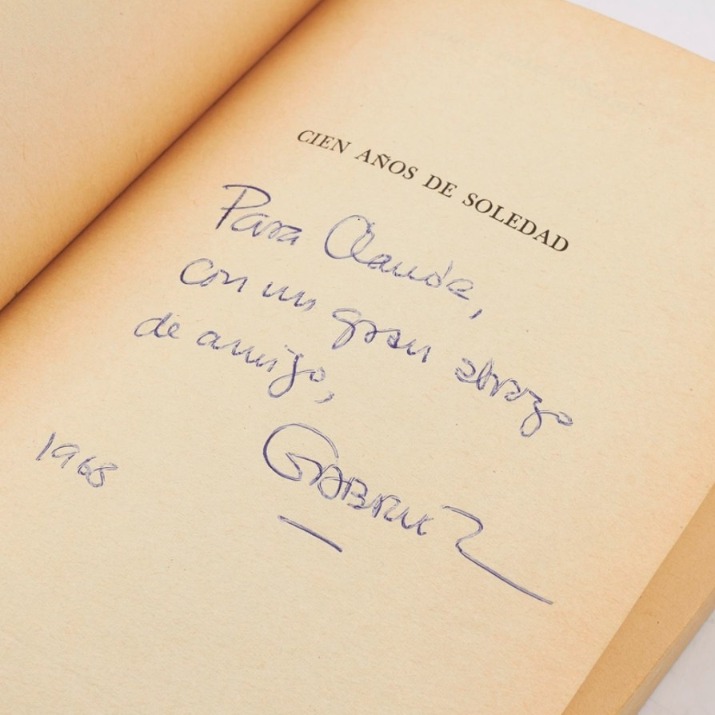 CIEN AÑOS DE SOLEDAD
Para Claude,
con un gran abrazo
de amigo,
GABRIEL
1968